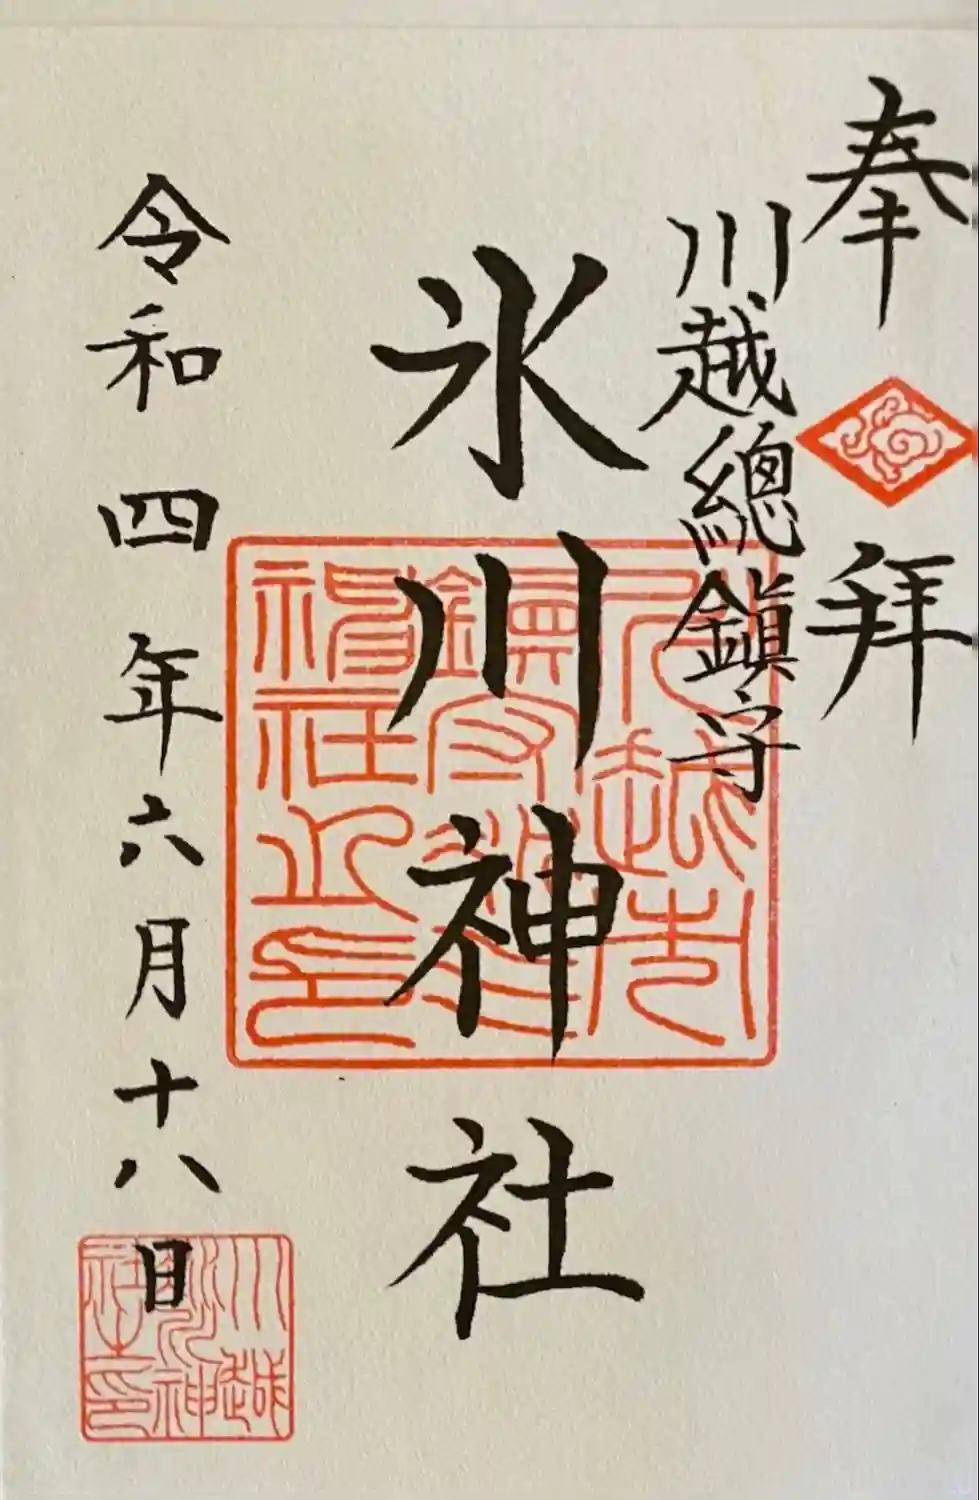 奉拜
川越總鎮守
氷川神社
令和四年六月十八日
川越
氷川神
社之印